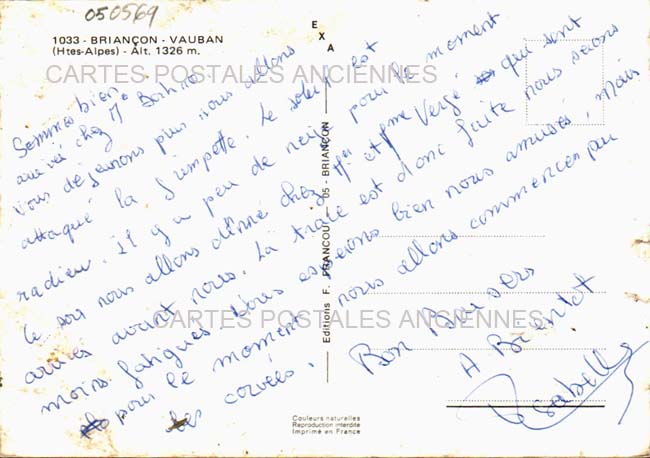 050569
1033 - BRIANÇON - VAUBAN
(Htes-Alpes) - Alt. 1326 m.
EXA
CARTES POSTALES ANCIENNES
Sommes bien
arrivés chez Me
Vous déjeunons puis nous allons
attaqué la grimpette. Le soleil est
radieu. Il y a peu de neige pour le moment
Le soir nous allons dîné chez Mr et Mme Vergé qui sont
arrivés avant nous. La trace est donc faite nous serons
moins fatigués. Nous espérons bien nous amuser. Mais
pour le moment nous allons commencer par
les corvées.
Bon Baisers
A Bientot
Isabelle
CARTES POSTALES ANCIENNES
Editions F. FRANCOU 05 - BRIANÇON
Couleurs naturelles
Reproduction interdite
Imprimé en France